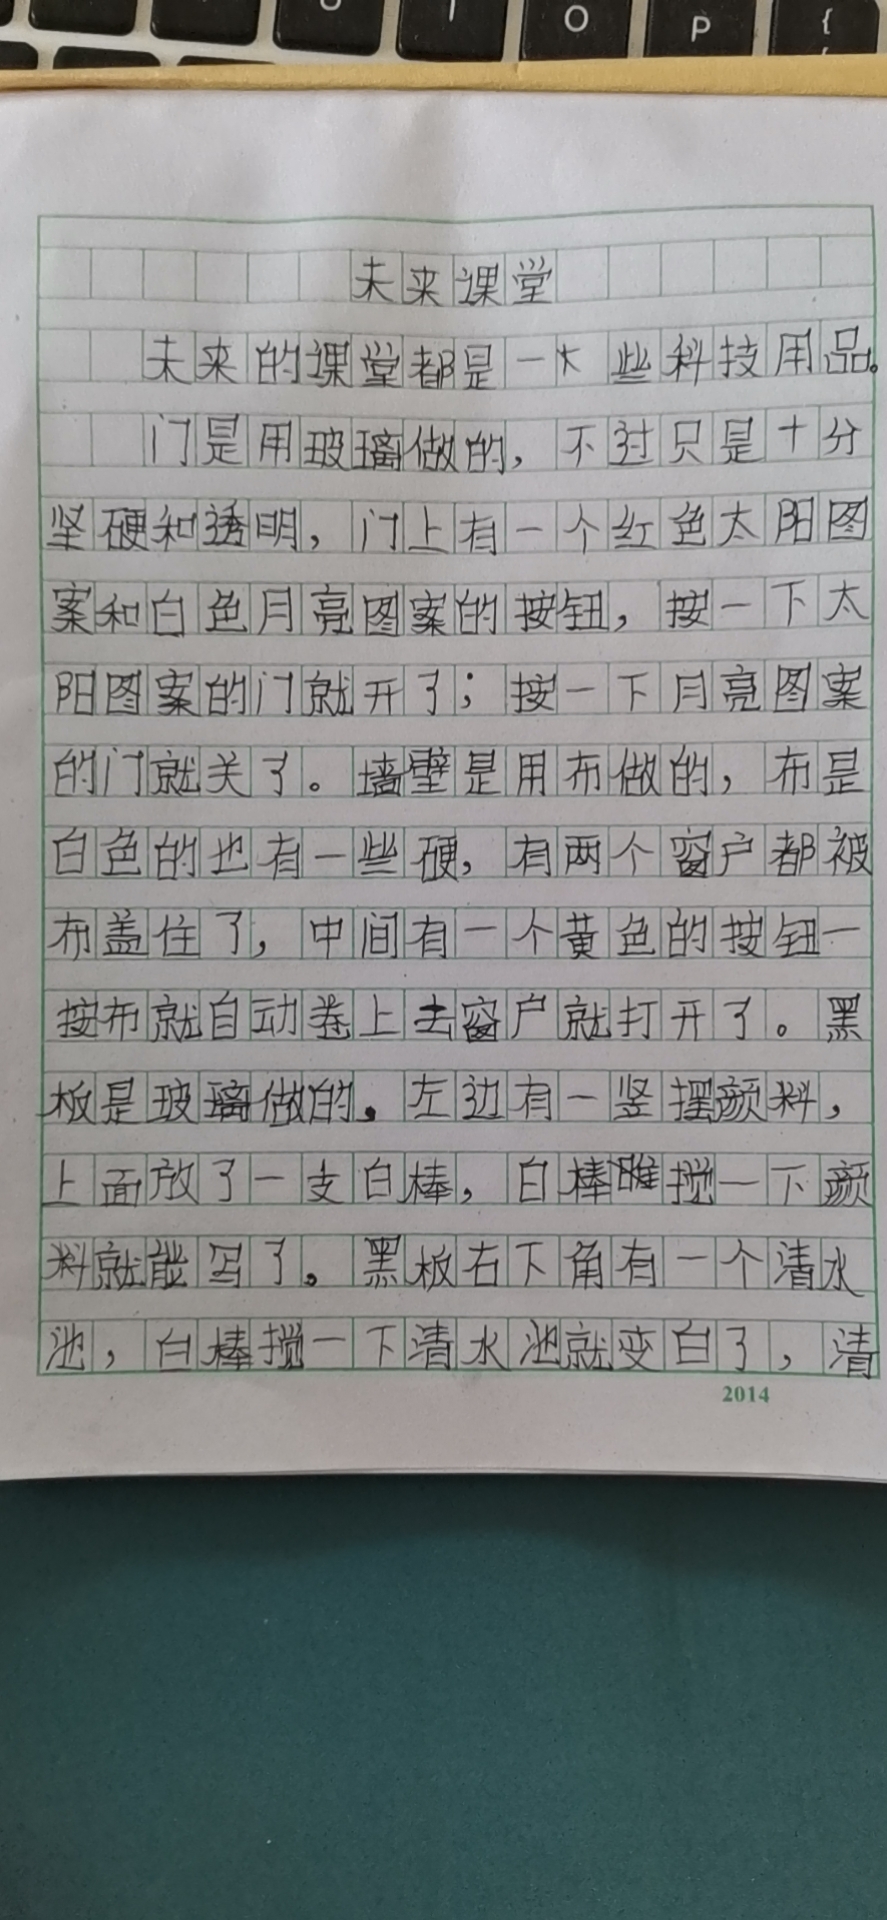 O P {
未来课堂
未来的课堂都是一大些科技用品。
门是用玻璃做的，不过只是十分
坚硬和透明，门上有一个红色太阳图
案和白色月亮图案的按钮，按一下太
阳图案的门就开了；按一下月亮图案
的门就关了。墙壁是用布做的，布是
白色的也有一些硬，有两个窗户都被
布盖住了，中间有一个黄色的按钮一
按布就自动卷上去窗户就打开了。黑
板是玻璃做的。左边有一竖摆颜料，
上面放了一支白棒，白棒搅一下颜
料就能写了。黑板右下角有一个清水
池，白棒搅一下清水池就变白了，清
2014